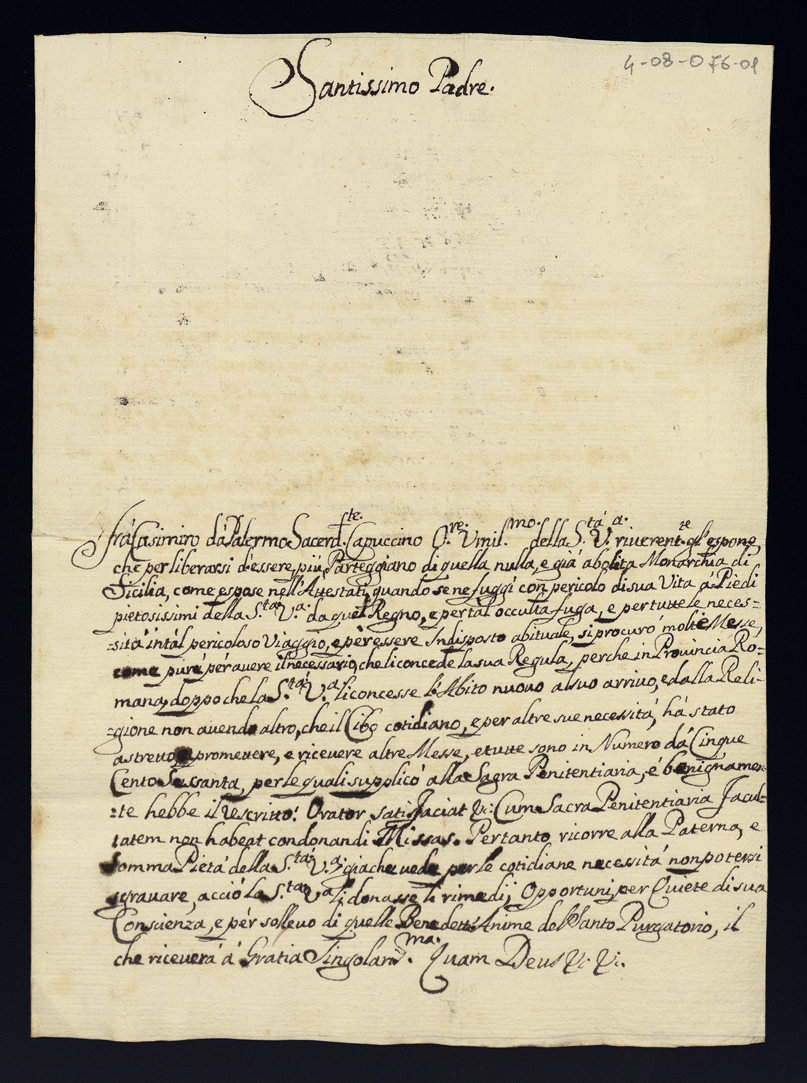 4-08-076-01
Santissimo Padre.
frà Casimiro dà Palermo Sacerd.te Capuccino O.re Umil.mo della S.tà V.a riverent.te gl'espone,
che per liberarsi d'essere più Parteggiano di quella nulla, e già abolita Monarchia di
Sicilia, come espose nell'Attestati, quando se ne fuggì con pericolo di sua Vita à Piedi
pietosissimi della S.tà V.a da quel Regno, e per tal occulta fuga, e per tutte le neces=
=sità in tàl pericoloso Viaggio, e pèr essere Indisposto abituale, si procurò molte Messe,
come pure per avere il necessario, che li concede la sua Regula, perche in Provincia Ro=
mana, doppo che la S.tà V.a li concesse l'Abito nuovo al suo arrivo, e dalla Reli=
=gione non avendo altro, che il Cibo cotidiano, e per altre sue necessità, hà stato
astretto a promettere, e ricevere altre Messe, e tutte sono in Numero dà Cinque
Cento Sessanta, per le quali supplicò alla Sagra Penitentiaria, e benignamen=
=te hebbe il rescritto: Orator satisfaciat &c: Cum Sacra Penitentiaria Facul=
tatem non habeat condonandi Missas. Pertanto ricorre alla Paterna, e
somma Pietà della S.tà V.a giache vede per le cotidiane necessità non potersi
sgravare, acciò la S.tà V.a li donasse li rimedij Opportuni, per Quiete di sua
Conscienza, e pèr sollevo di quelle Benedett'Anime del Santo Purgatorio, il
che riceverà à Gratia Singolaris.ma. Quam Deus &c &c.